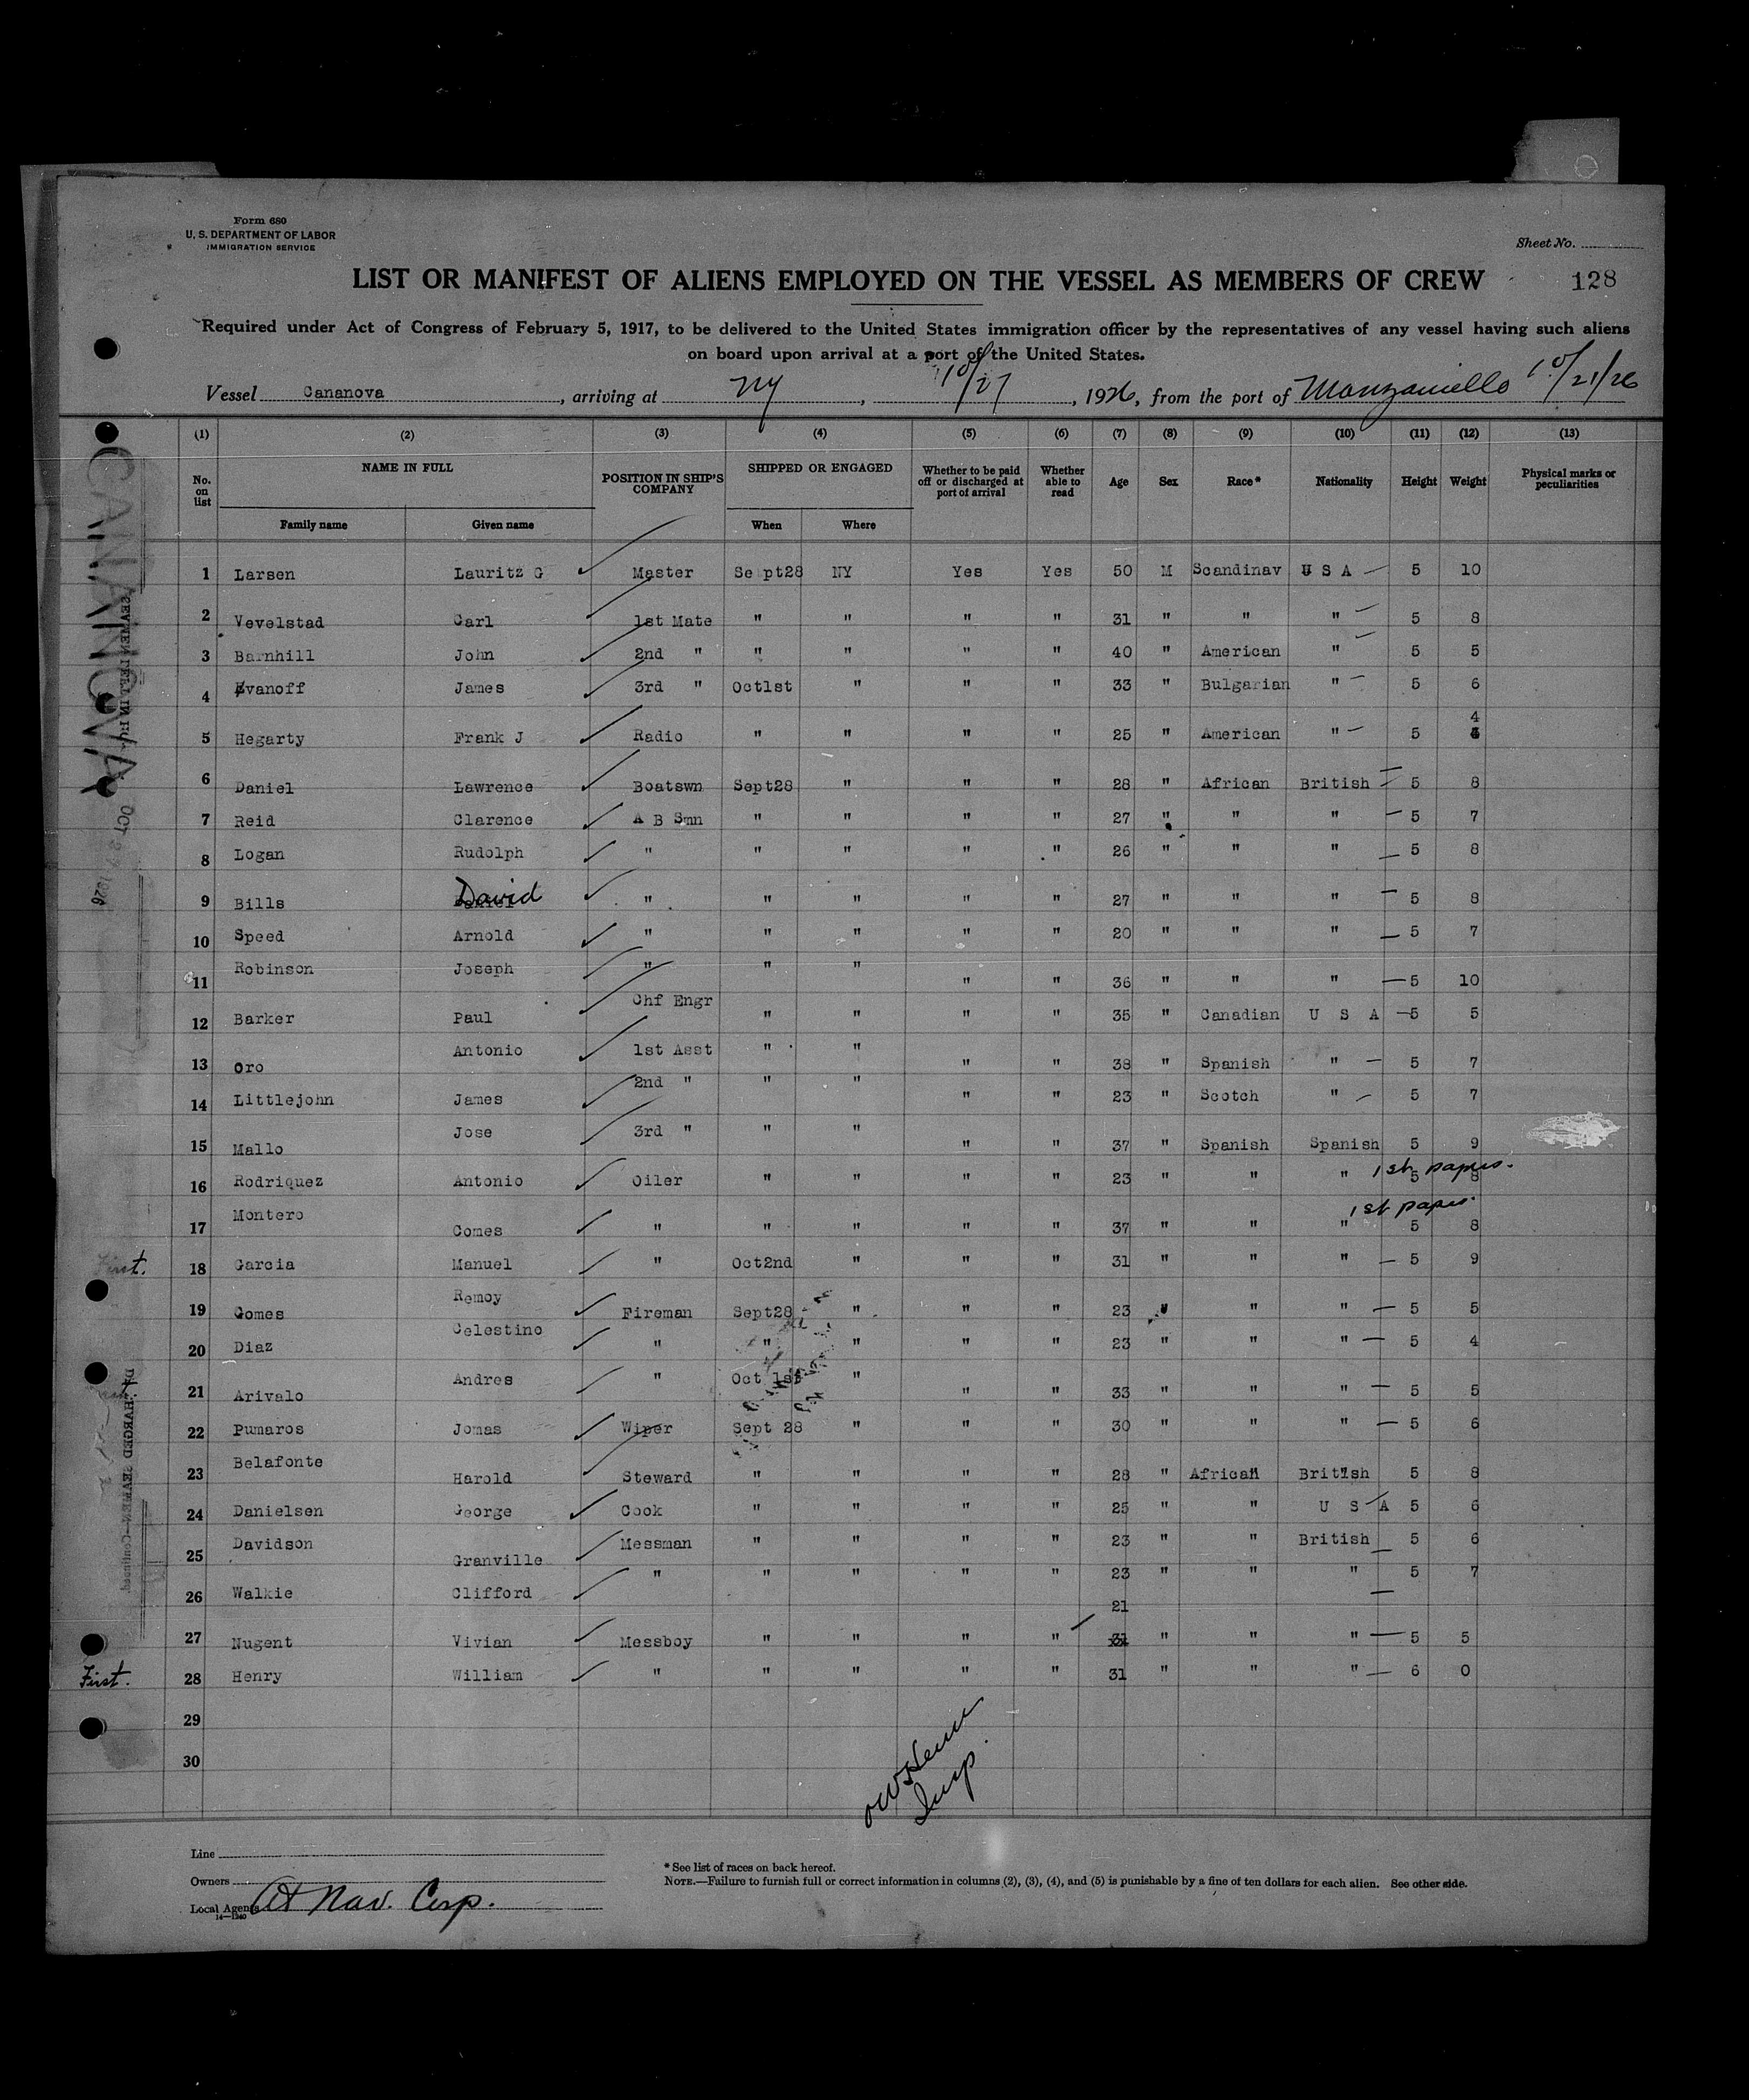 Form 680
U. S. DEPARTMENT OF LABOR
IMMIGRATION SERVICE
Sheet No.
LIST OR MANIFEST OF ALIENS EMPLOYED ON THE VESSEL AS MEMBERS OF CREW 128
Required under Act of Congress of February 5, 1917, to be delivered to the United States immigration officer by the representatives of any vessel having such aliens
on board upon arrival at a port of the United States.
Vessel Cananova, arriving at NY, 10/27, 1926, from the port of Manzanillo 10/21/26
(1) (2) (3) (4) (5) (6) (7) (8) (9) (10) (11) (12) (13)
No. on list NAME IN FULL Family name Given name POSITION IN SHIP'S COMPANY SHIPPED OR ENGAGED When Where Whether to be paid off or discharged at port of arrival Whether able to read Age Sex Race* Nationality Height Weight Physical marks or peculiarities
1 Larsen Lauritz G Master Sept28 NY Yes Yes 50 M Scandinav U S A 5 10
2 Vevelstad Carl 1st Mate " " " " 31 " " " 5 8
3 Barnhill John 2nd " " " " " 40 " American " 5 5
4 Evanoff James 3rd " Oct1st " " " 33 " Bulgarian " 5 6
5 Hegarty Frank J Radio " " " " 25 " American " 5 4
6 Daniel Lawrence Boatswn Sept28 " " " 28 " African British 5 8
7 Reid Clarence A B Smn " " " " 27 " " " 5 7
8 Logan Rudolph " " " " " 26 " " " 5 8
9 Bills David " " " " " 27 " " " 5 8
10 Speed Arnold " " " " " 20 " " " 5 7
11 Robinson Joseph " " " " " 36 " " " 5 10
12 Barker Paul Chf Engr " " " " 35 " Canadian U S A 5 5
13 Oro Antonio 1st Asst " " " " 38 " Spanish " 5 7
14 Littlejohn James 2nd " " " " " 23 " Scotch " 5 7
15 Mallo Jose 3rd " " " " " 37 " Spanish Spanish 5 9
16 Rodriquez Antonio Oiler " " " " 23 " " " 1st papers. 5 8
17 Montero Gomes " " " " " 37 " " " 1st papers. 5 8
First. 18 Garcia Manuel " Oct2nd " " " 31 " " " 5 9
19 Gomes Remoy Fireman Sept28 " " " 23 " " " 5 5
20 Diaz Celestino " " " " " 23 " " " 5 4
21 Arivalo Andres " Oct 1st " " " 33 " " " 5 5
22 Pumaros Jomas Wiper Sept 28 " " " 30 " " " 5 6
23 Belafonte Harold Steward " " " " 28 " African British 5 8
24 Danielsen George Cook " " " " 25 " " U S A 5 6
25 Davidson Granville Messman " " " " 23 " " British 5 6
26 Walkie Clifford " " " " " 23 " " " 5 7
27 Nugent Vivian Messboy " " " " 21 " " " 5 5
First. 28 Henry William " " " " " 31 " " " 6 0
29
30
Insp.
Line
Owners
Local Agents At Nav. Corp.
14—1240
* See list of races on back hereof.
NOTE.—Failure to furnish full or correct information in columns (2), (3), (4), and (5) is punishable by a fine of ten dollars for each alien. See other side.
CANANOVA
OCT 27 1926
DISCHARGED SEAMEN—Continued.